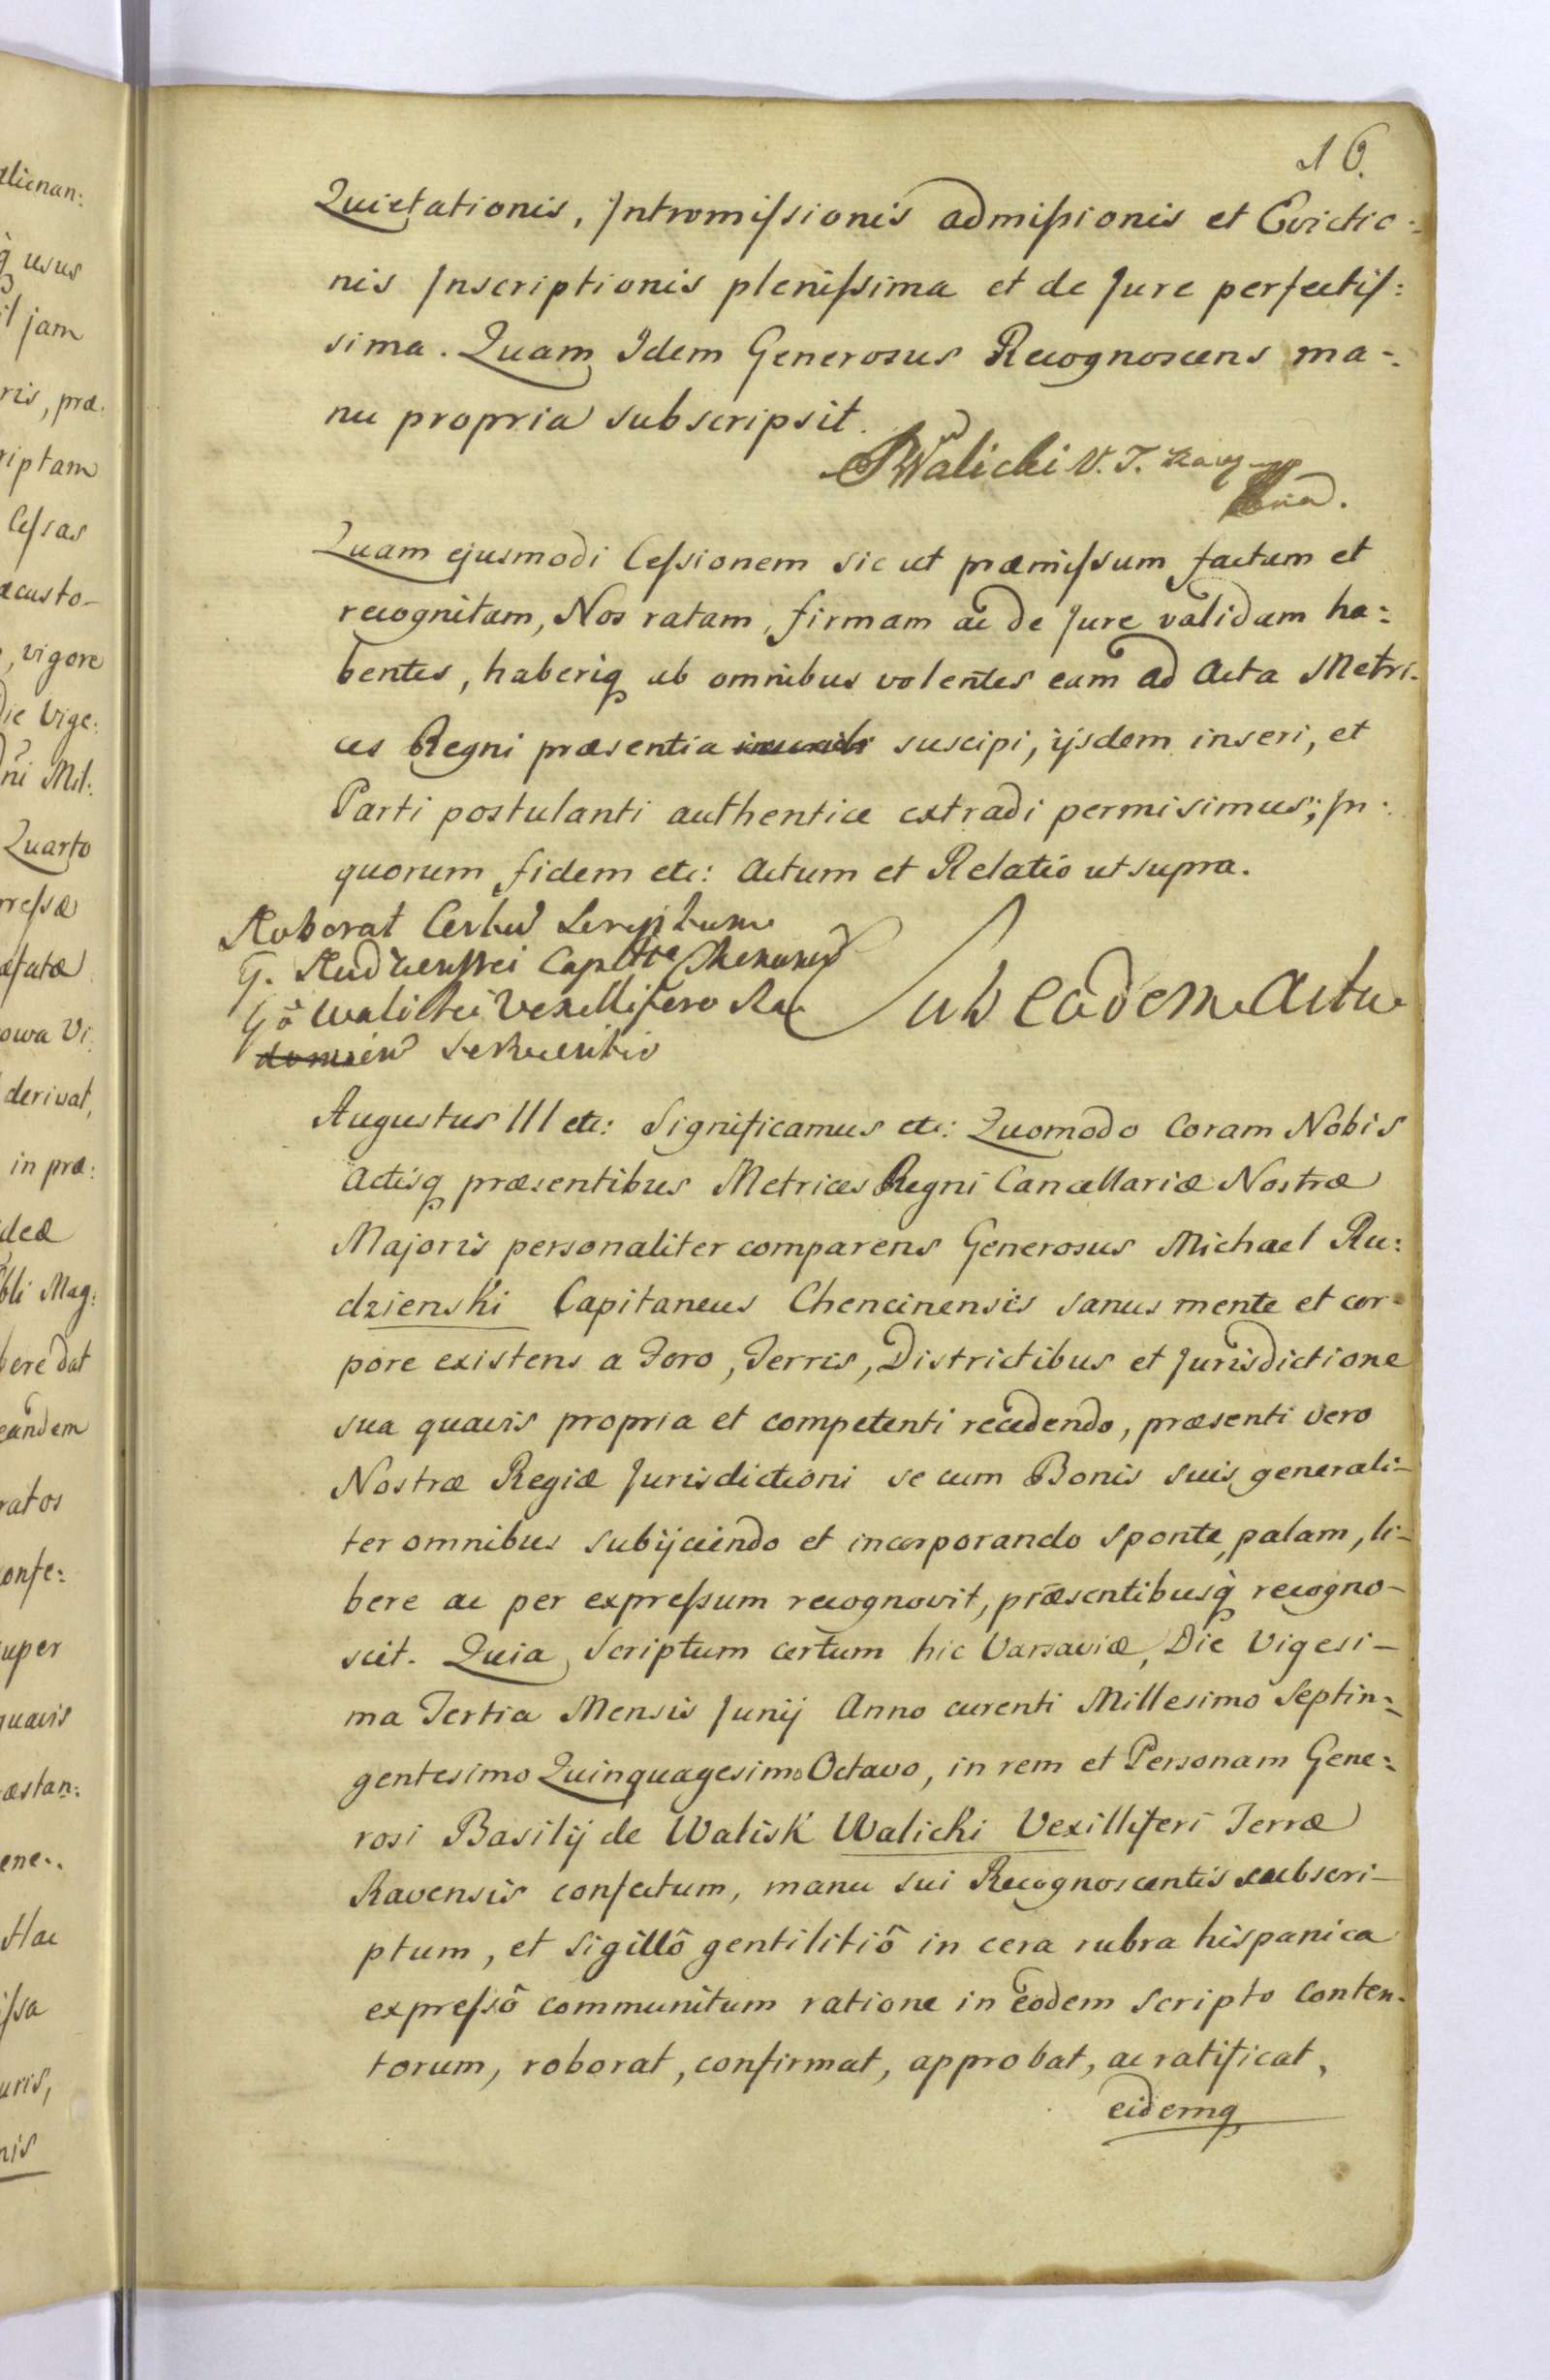 16.
Quietationis, Intromiſsionis admiſsionis et Evictio:
nis Inscriptionis pleniſsima et de Jure perfectiſ:
sima. Quam Idem Generosus Recognoscens ma-
nu propria subscripsit.
BWalicki V. T. Raw
Quam ejusmodi Ceſsionem sic ut præmiſsum factam et
recognitam, Nos ratam, firmam ac de Jure validam ha:
bentes, haberiq ab omnibus volentes eam ad Acta Metri-
ces Regni præsentia suscipi, ijsdem inseri, et
Parti postulanti authentice extradi permisimus; In:
quorum fidem etc: Actum et Relatio ut supra.
Roborat Certum Scriptum
G. Rudzienski Capitte Chencinen
Gō Walicki Vexillifero Ra
Serviens
Sub eadem Actu
Augustus III etc: Significamus etc: Quomodo Coram Nobis
Actisq præsentibus Metrices Regni Cancellariæ Nostræ
Majoris personaliter comparens Generosus Michael Ru:
dzienski Capitaneus Chencinensis sanus mente et cor-
pore existens a Foro, Terris, Districtibus et Jurisdictione
sua quavis propria et competenti recedendo, præsenti vero
Nostræ Regiæ Jurisdictioni se cum Bonis suis generali-
ter omnibus subijciendo et incorporando sponte, palam, li-
bere ac per expreſsum recognovit, præsentibusq recogno-
scit. Quia Scriptum certum hic Varsaviæ, Die Vigesi-
ma Tertia Mensis Junij Anno curenti Millesimo Septin-
gentesimo Quinquagesimo Octavo, in rem et Personam Gene:
rosi Basilij de Walisk Walicki Vexilliferi Terræ
Ravensis confectum, manu sui Recognoscentis subscri-
ptum, et sigillô gentilitiô in cera rubra hispanica
expreſsô communitum ratione in eodem scripto conten-
torum, roborat, confirmat, approbat, ac ratificat,
eidemq